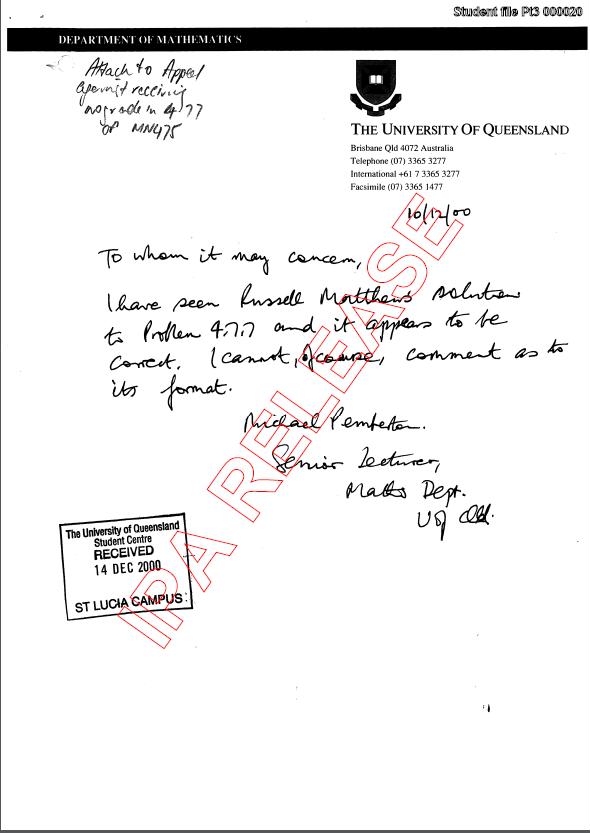 Student file Pt3 000020
DEPARTMENT OF MATHEMATICS
Attach to Appeal
against receiving
no grade in 4.77
of MN475
THE UNIVERSITY OF QUEENSLAND
Brisbane Qld 4072 Australia
Telephone (07) 3365 3277
International +61 7 3365 3277
Facsimile (07) 3365 1477
10/12/00
To whom it may concern,
I have seen Russell Matthews solution
to Problem 4.7.7 and it appears to be
correct. I cannot, of course, comment as to
its format.
Michael Pemberton.
Senior Lecturer,
Maths Dept.
U of Qld.
IPA RELEASE
The University of Queensland
Student Centre
RECEIVED
14 DEC 2000
ST LUCIA CAMPUS